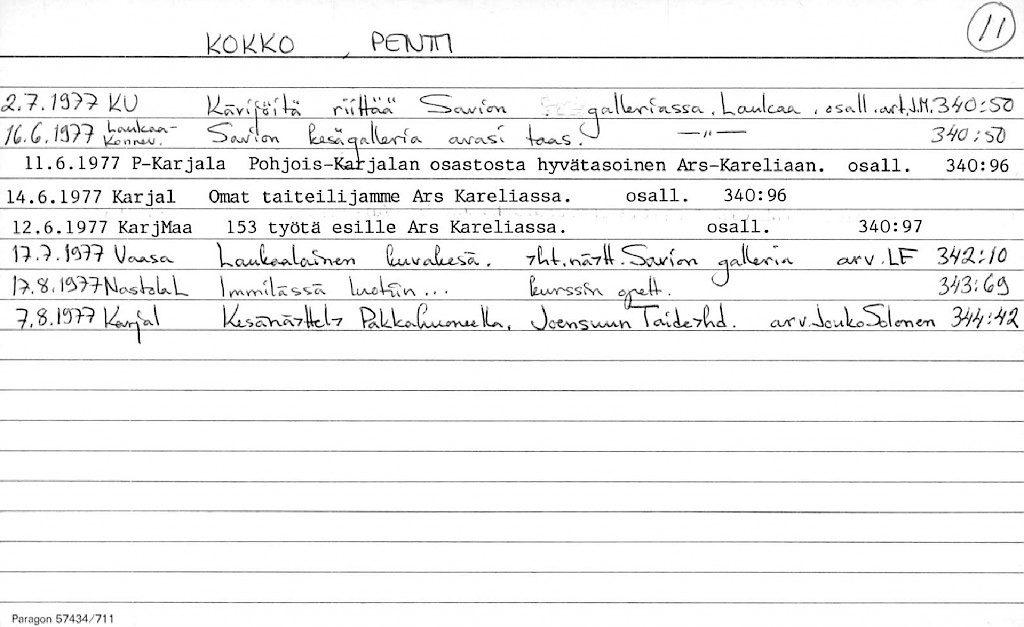 KOKKO, PENTTI 11
2.7.1977 KU Kävijöitä riittää Savion galleriassa. Laukaa. osall. art. J.M. 340:50
16.6.1977 Laukaa-Konnev. Savion kesägalleria avasi taas. —"— 340:50
11.6.1977 P-Karjala Pohjois-Karjalan osastosta hyvätasoinen Ars-Kareliaan. osall. 340:96
14.6.1977 Karjal Omat taiteilijamme Ars Kareliassa. osall. 340:96
12.6.1977 KarjMaa 153 työtä esille Ars Kareliassa. osall. 340:97
17.7.1977 Vaasa Laukaalainen kuvakesä. yht.näytt. Savion galleria arv. LF 342:10
17.8.1977 NastolaL Immilässä luotiin... kurssin opett. 343:69
7.8.1977 Karjal Kesänäyttely Pakkahuoneella, Joensuun Taideyhd. arv. Jouko Solonen 344:42
Paragon 57434/711